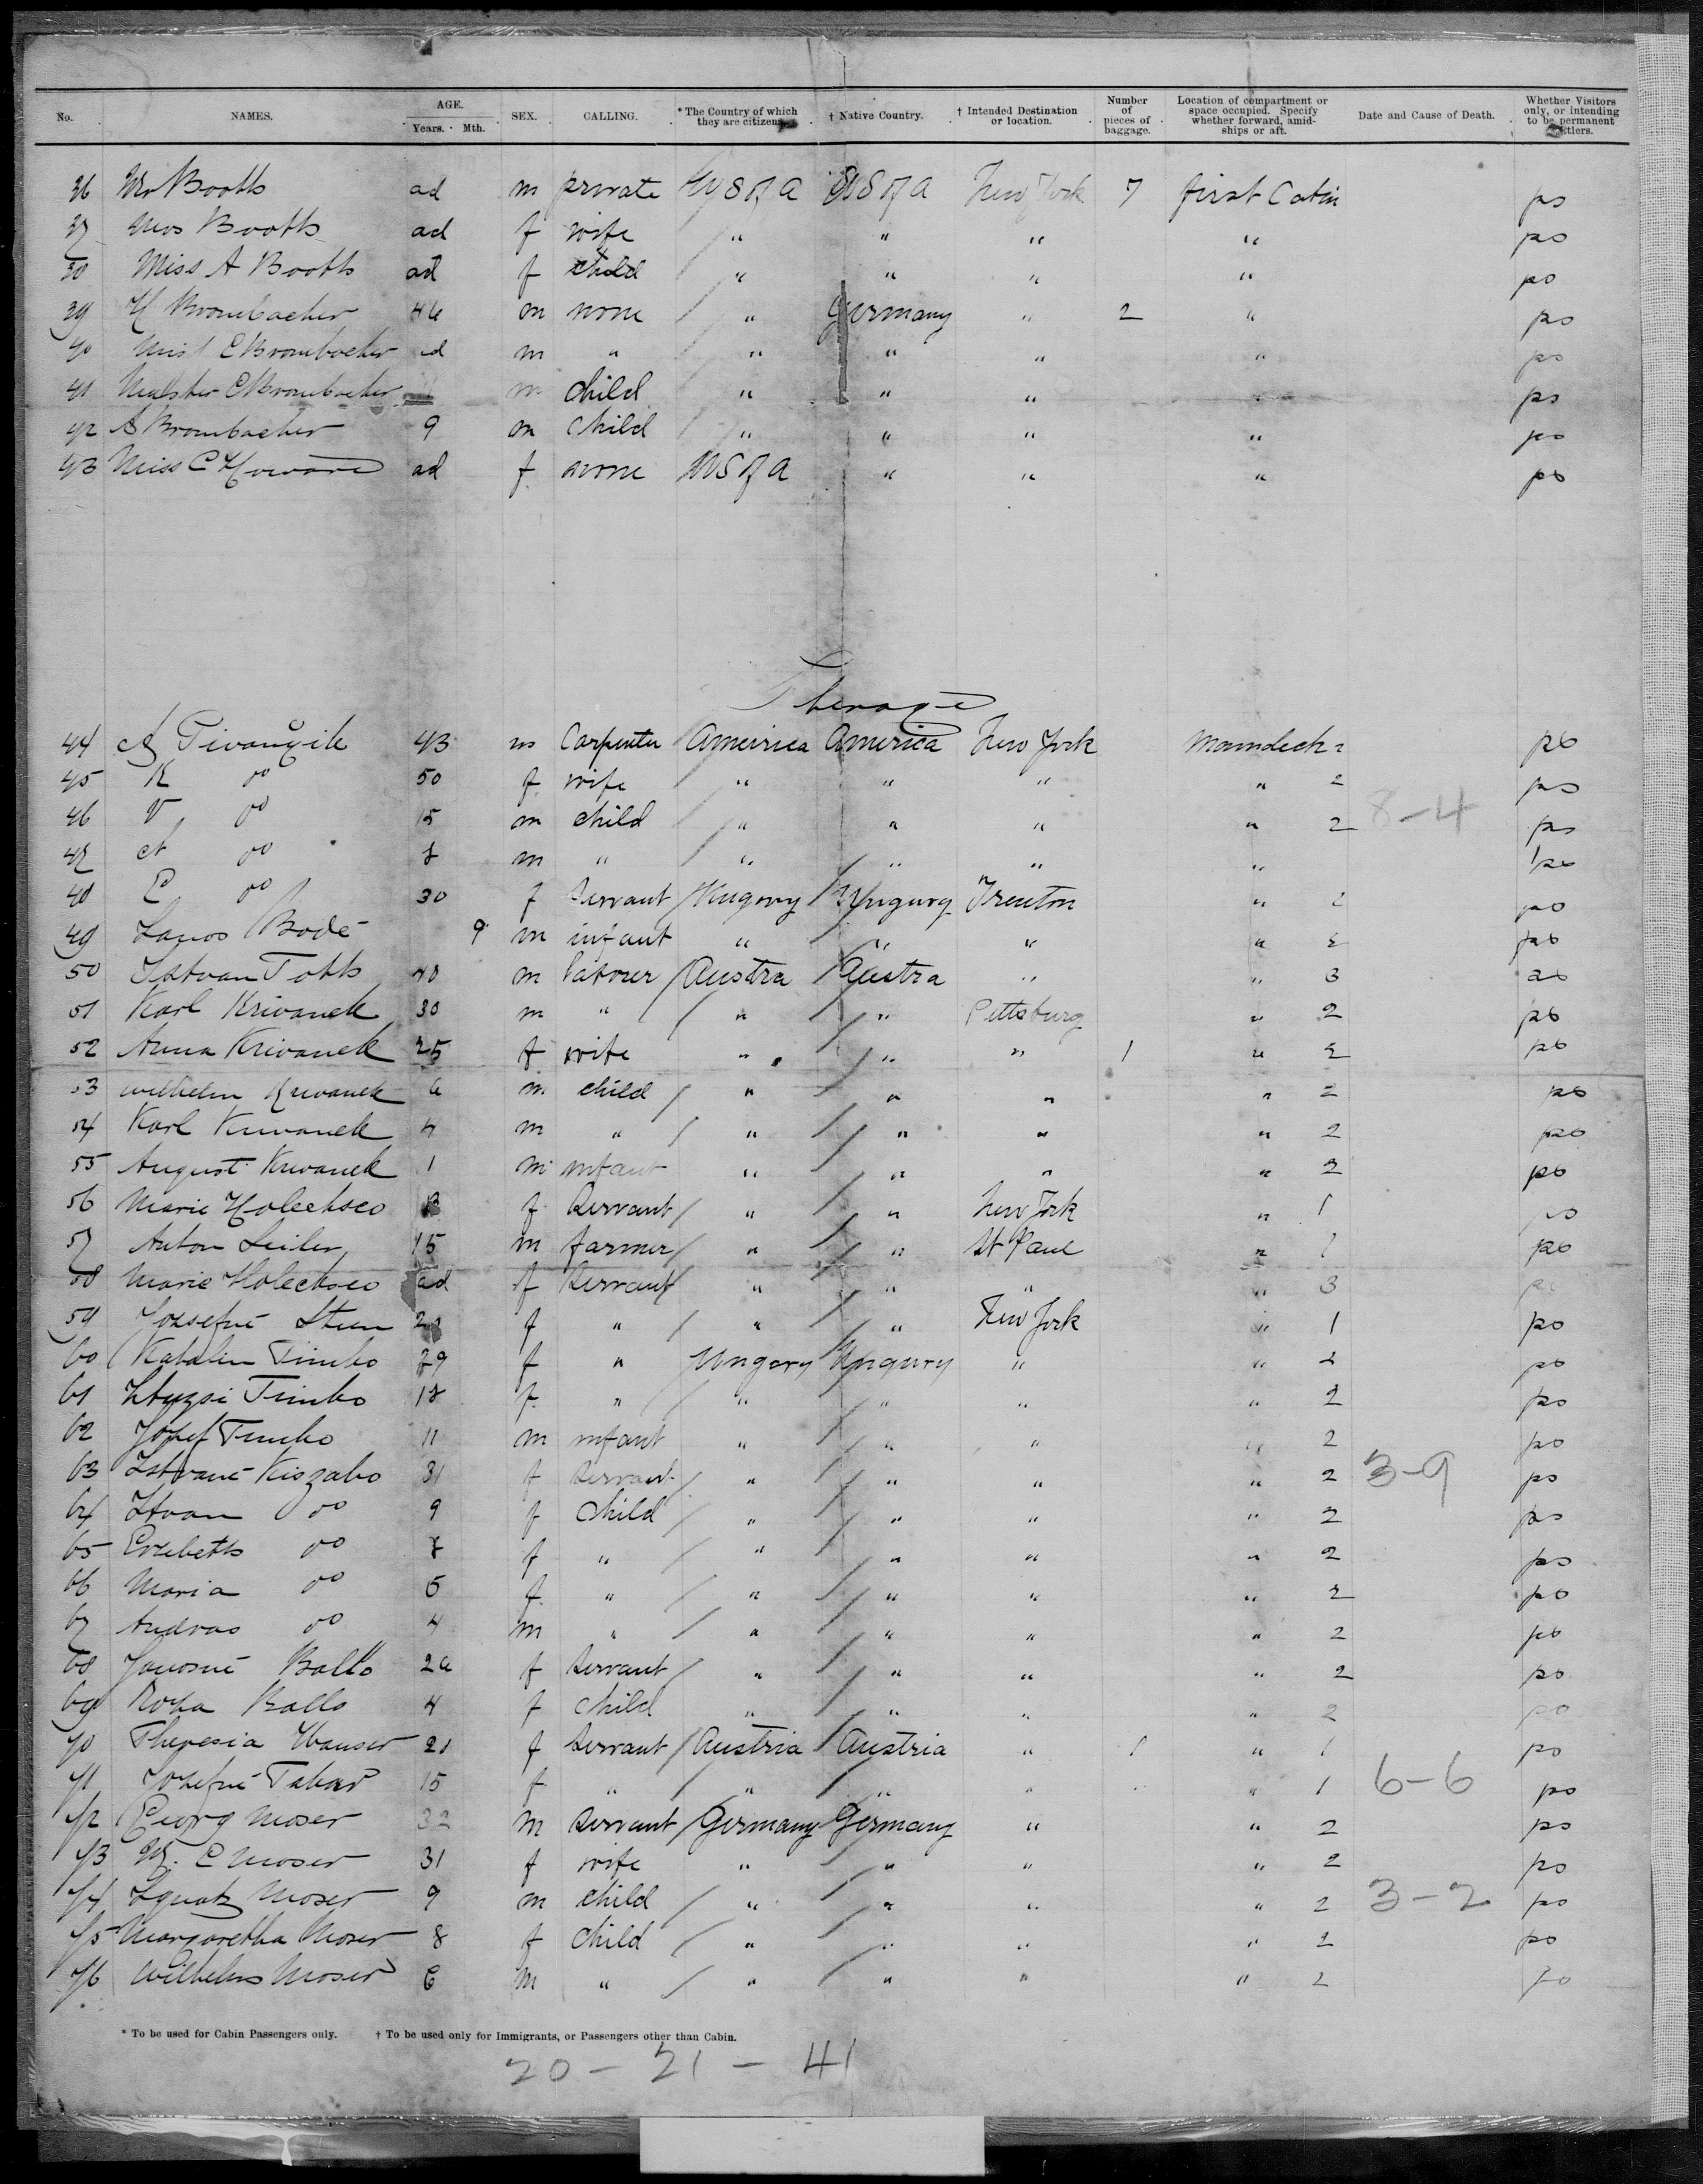 No. NAMES. AGE. Years. Mth. SEX. CALLING. * The Country of which they are citizens. † Native Country. † Intended Destination or location. Number of pieces of baggage. Location of compartment or space occupied. Specify whether forward, amidships or aft. Date and Cause of Death. Whether Visitors only, or intending to be permanent settlers.
36 Mr Booth ad m private U S of A U S of A New York 7 first Cabin po
37 Mrs Booth ad f wife " " " " po
38 Miss A Booth ad f child " " " " po
39 H Brombacher 46 m none " Germany " 2 " po
40 E Brombacher ad m " " " " " po
41 Master C Brombacher m child " " " " po
42 A Brombacher 9 m child " " " " po
43 Miss C Howard ad f none U S of A " " " po
Sterage
44 43 m Carpenter America America New York Maindeck 2 po
45 K do 50 f wife " " " " 2 po
46 V do 15 m child " " " " 2 8-4 po
47 A do 8 m " " " " " po
48 E do 30 f servant Hungary Trenton " 2 po
49 Janos Bode 9 m infant " " " " 2 po
50 Istvan Toth 40 m labourer Austra Austra " " 3 po
51 Karl Krivanek 30 m " " " Pittsburg " 2 po
52 Anna Krivanek 25 f wife " " " 1 " 2 po
53 Wilhelm Krivanek 6 m child " " " " 2 po
54 Karl Krivanek 4 m " " " " " 2 po
55 August Krivanek 1 m infant " " " " 2 po
56 Marie Holecksco f servant " " New York " 1 po
57 Anton Seiler 15 m farmer " " St Paul " 1 po
58 Marie Holecksco ad f servant " " " " 3
59 Joszefne Stern f " " " New York " 1 po
60 Katalin Timko 29 f " Ungary Ungary " " 2 po
61 Timko 18 f " " " " " 2 po
62 Jozsef Timko 11 m infant " " " " 2 po
63 Istvane Kiszabo 31 f servant " " " " 2 3-9 po
64 Istvan do 9 f child " " " " 2 po
65 Erzebeth do 7 f " " " " " 2 po
66 Maria do 5 f " " " " " 2 po
67 Andras do 4 m " " " " " 2 po
68 Janosne Ballo 26 f servant " " " " 2 po
69 Roza Ballo 4 f child " " " " 2 po
70 Theresia Hauser 21 f servant Austria Austria " 1 " 1 po
71 Jozefne Takar 15 f " " " " " 1 6-6 po
72 Georg Moser 32 m servant Germany Germany " " 2 po
73 E Moser 31 f wife " " " " 2 po
74 Ignatz Moser 9 m child " " " " 2 3-2 po
75 Margaretha Moser 8 f child " " " " 2 po
76 Wilhelm Moser 6 m " " " " " 2 po
* To be used for Cabin Passengers only. † To be used only for Immigrants, or Passengers other than Cabin.
20 - 21 - 41